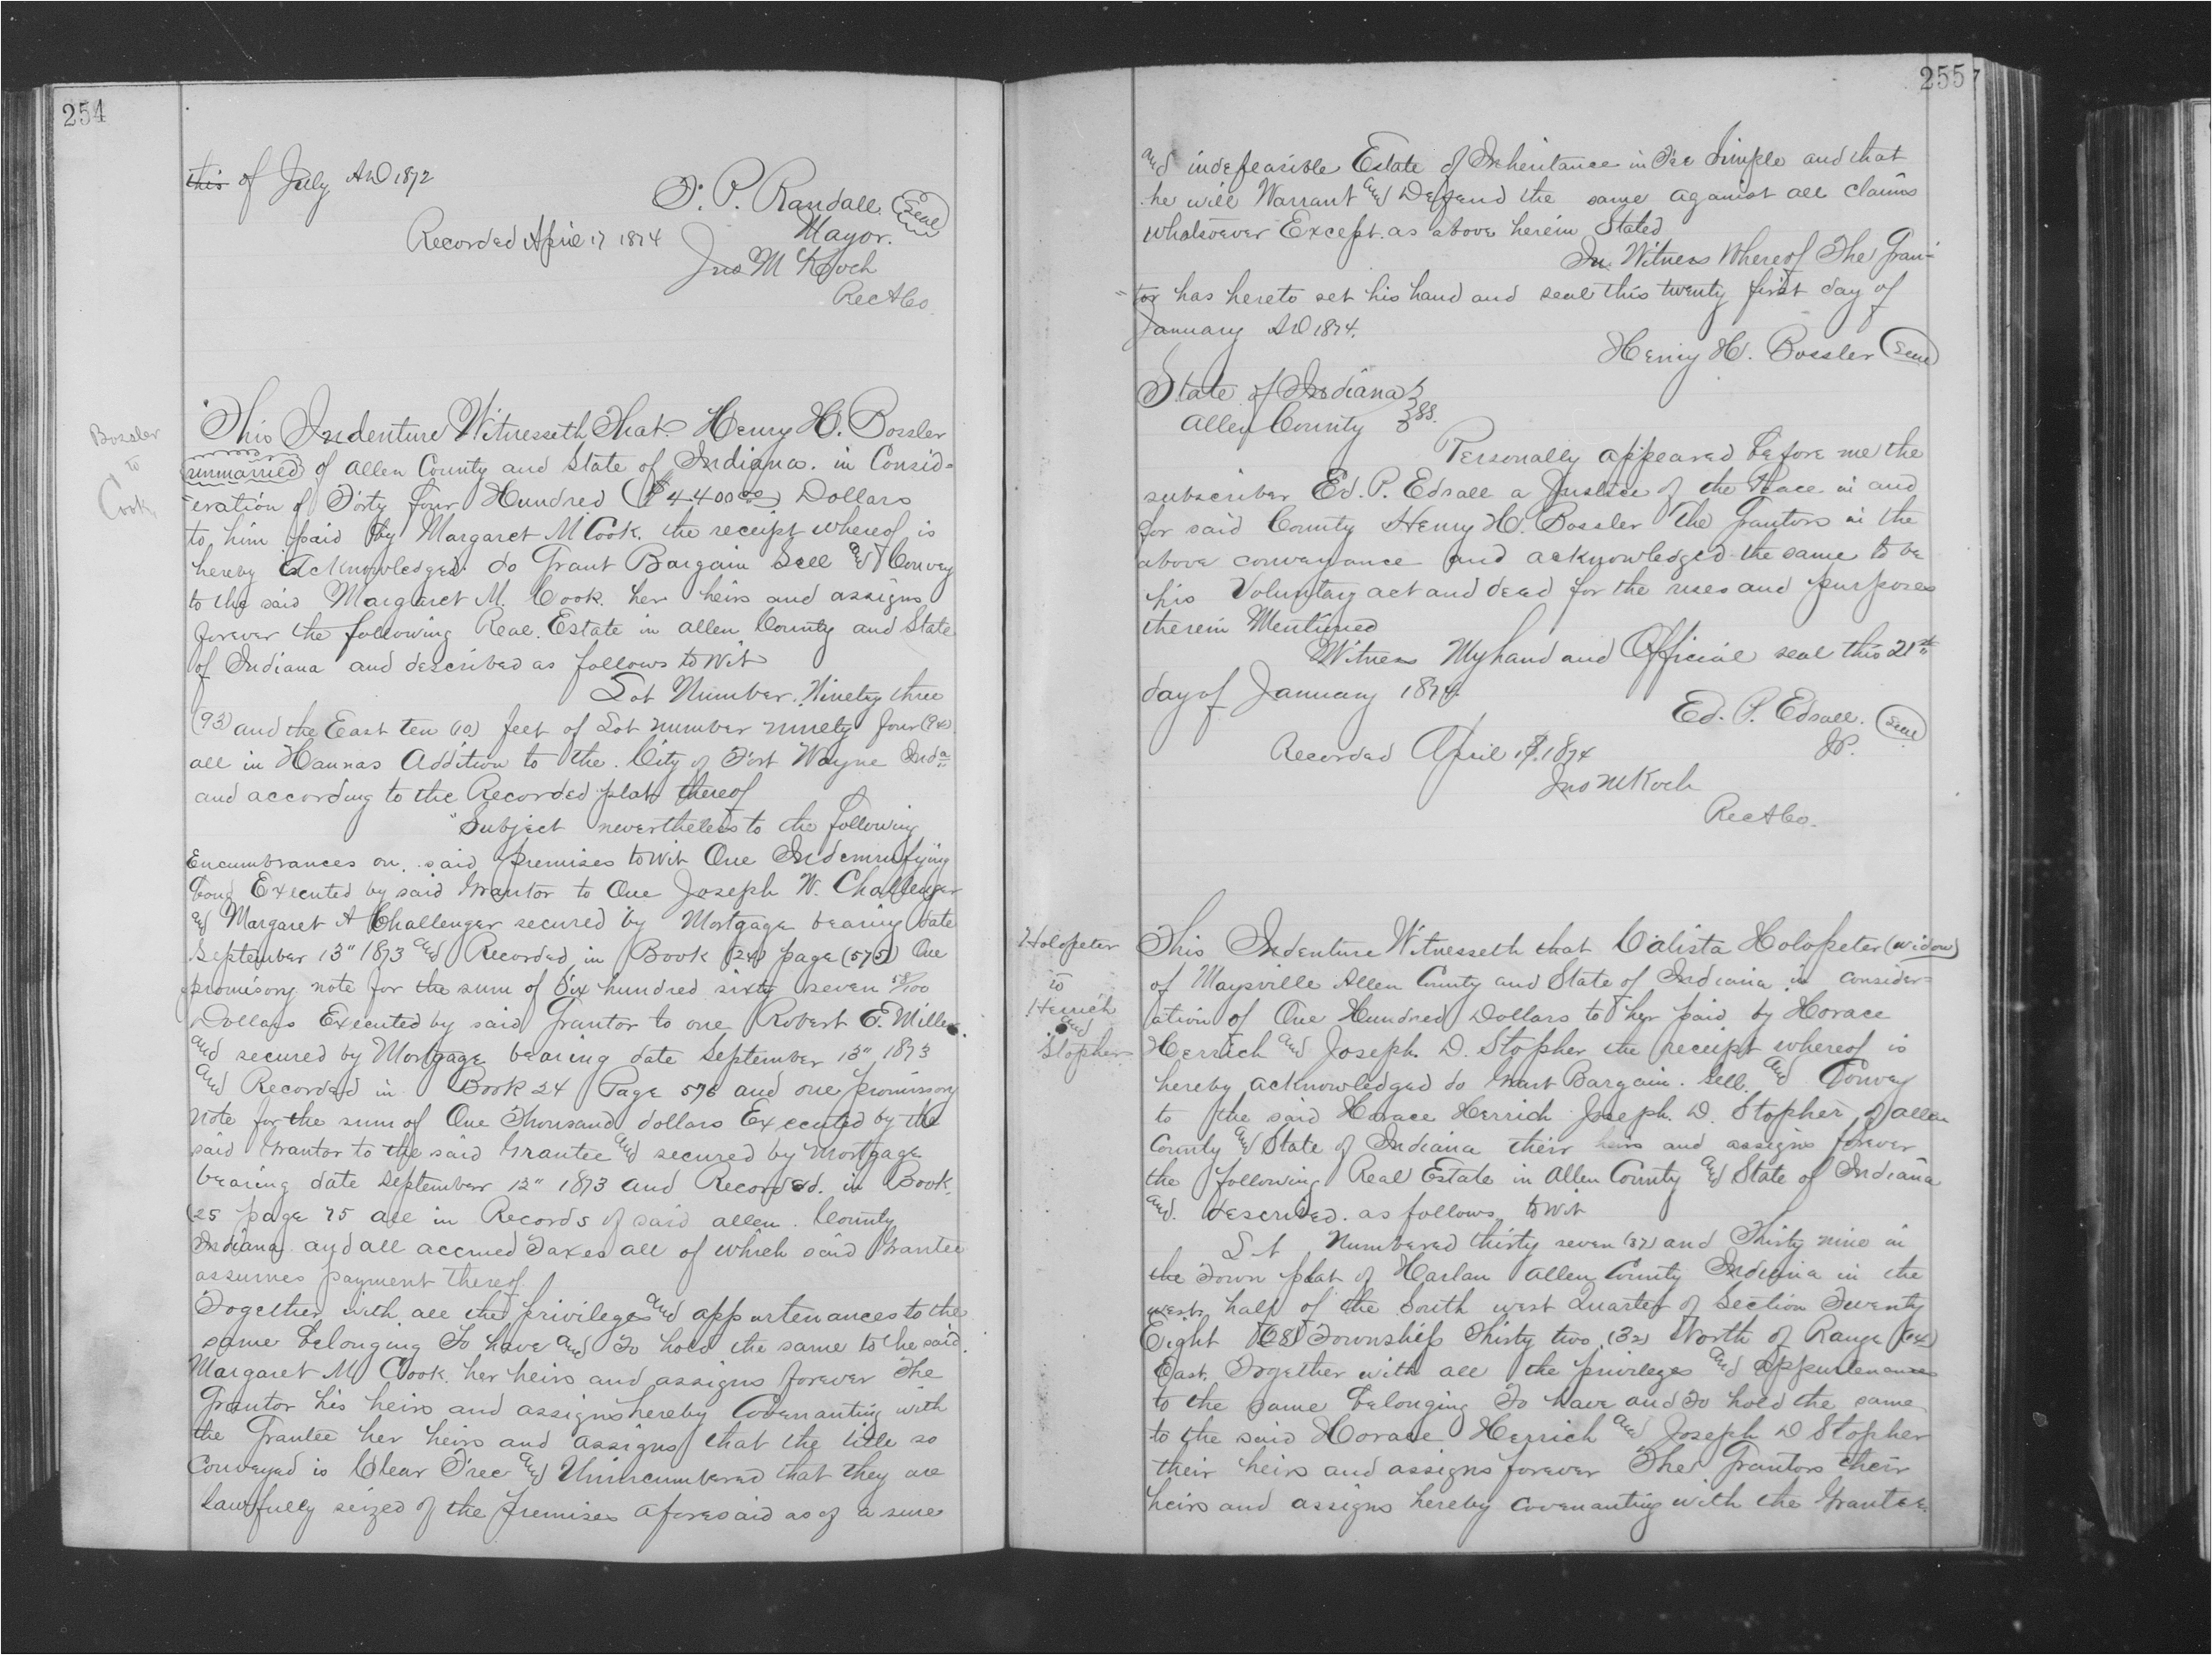 254
this of July AD 1872
F. P. Randall. Seal
Mayor.
Recorded April 17 1874
Jno M Koch
Rec A Co.
Bossler
to
Cook
This Indenture Witnesseth That Henry H. Bossler
unmarried of Allen County and State of Indiana. in Consid=
eration of Forty four Hundred ($4400.00) Dollars
to him paid by Margaret M Cook. the receipt whereof is
hereby acknowledged. do Grant Bargain Sell and Convey
to the said Margaret M. Cook. her heirs and assigns
forever the following Real Estate in Allen County and State
of Indiana and described as follows to wit
Lot Number. Ninety three
(93) and the East ten (10) feet of Lot number ninety four (94)
all in Hannas Addition to the City of Fort Wayne Inda
and according to the Recorded plat thereof
Subject nevertheless to the following
Encumbrances on said premises to wit One Indemnifying
bond Executed by said Grantor to One Joseph W. Challenger
and Margaret A Challenger secured by Mortgage bearing date
September 13" 1873 and Recorded in Book (24) page (575) One
promisory note for the sum of Six hundred sixty seven 58/100
Dollars Executed by said Grantor to one Robert E. Miller
and secured by Mortgage bearing date September 13" 1873
and Recorded in Book 24 Page 576 and one promissory
note for the sum of One Thousand dollars Executed by the
said Grantor to the said Grantee and secured by Mortgage
bearing date September 12" 1873 and Recorded. in Book.
25 page 75 all in Records of said Allen County
Indiana and all accrued Taxes all of which said Grantee
assumes payment thereof.
Together with all the privileges and appurtenances to the
same belonging To have and To hold the same to the said
Margaret M Cook. her heirs and assigns forever The
Grantor his heirs and assigns hereby Covenanting with
the Grantee her heirs and assigns that the title so
Conveyed is Clear Free and Unincumbered that they are
Lawfully seized of the premises aforesaid as of a sure
255
and indefeasible Estate of Inheritance in Fee Simple and that
he will Warrant and Defend the same against all claims
whatsoever Except as above herein Stated
In Witness Whereof The Gran-
tor has hereto set his hand and seal this twenty first day of
January AD 1874.
Henry H. Bossler Seal
State of Indiana
Allen County SS.
Personally appeared before me the
subscriber Ed. P. Edsall a Justice of the Peace in and
for said County Henry H. Bossler The Grantors in the
above conveyance and acknowledged the same to be
his Voluntary act and deed for the uses and purposes
therein Mentioned
Witness My hand and Official seal this 21st
day of January 1874.
Ed. P. Edsall. Seal
JP.
Recorded April 17. 1874
Jno M Koch
Rec A Co.
Holopeter
to
Herrich
and
Stopher
This Indenture Witnesseth that Calista Holopeter (widow)
of Maysville Allen County and State of Indiana in consider=
ation of One Hundred Dollars to her paid by Horace
Herrich and Joseph D. Stopher the receipt whereof is
hereby acknowledged do Grant Bargain. Sell. and Convey
to the said Horace Herrich Joseph D. Stopher of Allen
County and State of Indiana their heirs and assigns forever
the following Real Estate in Allen County and State of Indiana
and described. as follows to wit
Lot Numbered thirty seven (37) and Thirty nine in
the Town plat of Harlan Allen County Indiana in the
west half of the South west Quarter of Section Twenty
Eight (28) Township Thirty two (32) North of Range (14)
East. Together with all the privileges and appurtenances
to the same belonging To have and To hold the same
to the said Horace Herrich and Joseph D Stopher
their heirs and assigns forever The Grantors their
heirs and assigns hereby Covenanting with the Grantee